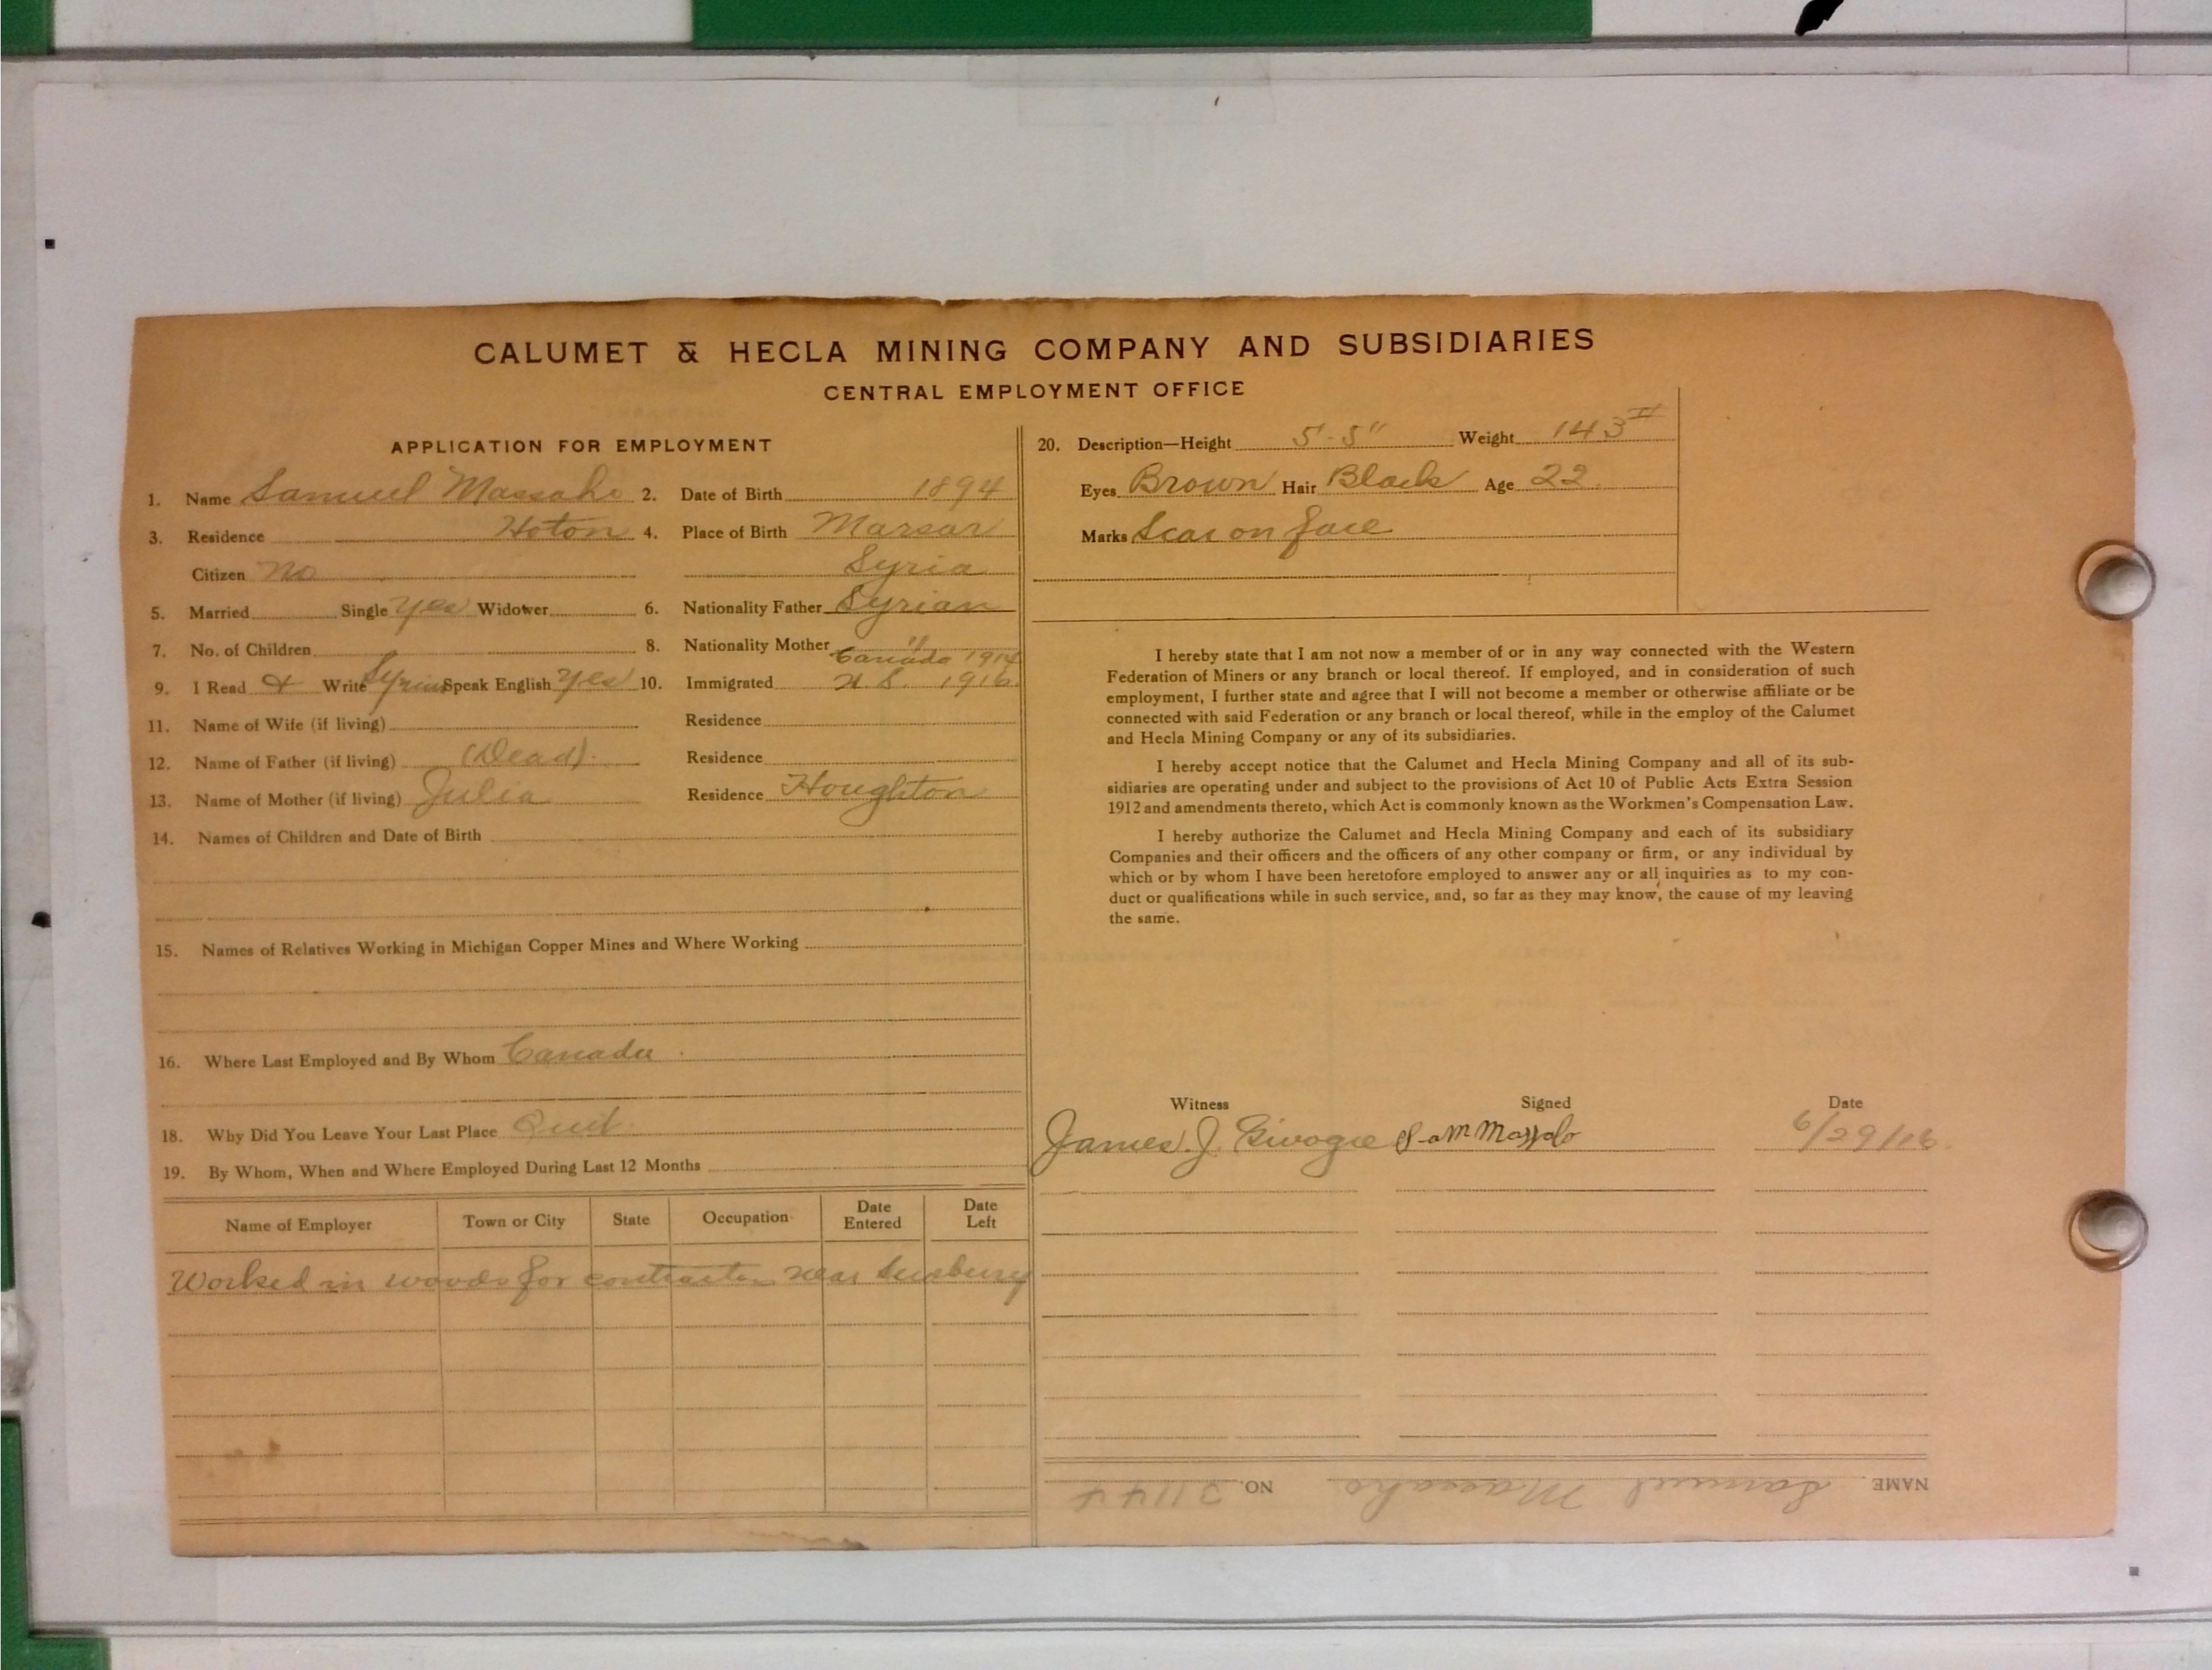 CALUMET & HECLA MINING COMPANY AND SUBSIDIARIES
CENTRAL EMPLOYMENT OFFICE
APPLICATION FOR EMPLOYMENT
1. Name Samuel Massaho 2. Date of Birth 1894
3. Residence Hoton 4. Place of Birth Marsar
Citizen No Syria
5. Married Single yes Widower 6. Nationality Father Syrian
7. No. of Children 8. Nationality Mother "
Canada 1914
9. I Read & Write Syrian Speak English yes 10. Immigrated U S. 1916
11. Name of Wife (if living) Residence
12. Name of Father (if living) (Dead). Residence
13. Name of Mother (if living) Julia Residence Houghton
14. Names of Children and Date of Birth
15. Names of Relatives Working in Michigan Copper Mines and Where Working
16. Where Last Employed and By Whom Canada
18. Why Did You Leave Your Last Place Quit
19. By Whom, When and Where Employed During Last 12 Months
Name of Employer Town or City State Occupation Date Entered Date Left
Worked in woods for contractor near Sudbury
20. Description—Height 5'-5" Weight 143
Eyes Brown Hair Black Age 22
Marks Scar on face
I hereby state that I am not now a member of or in any way connected with the Western
Federation of Miners or any branch or local thereof. If employed, and in consideration of such
employment, I further state and agree that I will not become a member or otherwise affiliate or be
connected with said Federation or any branch or local thereof, while in the employ of the Calumet
and Hecla Mining Company or any of its subsidiaries.
I hereby accept notice that the Calumet and Hecla Mining Company and all of its sub-
sidiaries are operating under and subject to the provisions of Act 10 of Public Acts Extra Session
1912 and amendments thereto, which Act is commonly known as the Workmen's Compensation Law.
I hereby authorize the Calumet and Hecla Mining Company and each of its subsidiary
Companies and their officers and the officers of any other company or firm, or any individual by
which or by whom I have been heretofore employed to answer any or all inquiries as to my con-
duct or qualifications while in such service, and, so far as they may know, the cause of my leaving
the same.
Witness Signed Date
James J. Sam 6/29/16
NAME Samuel Massaho NO. 31144